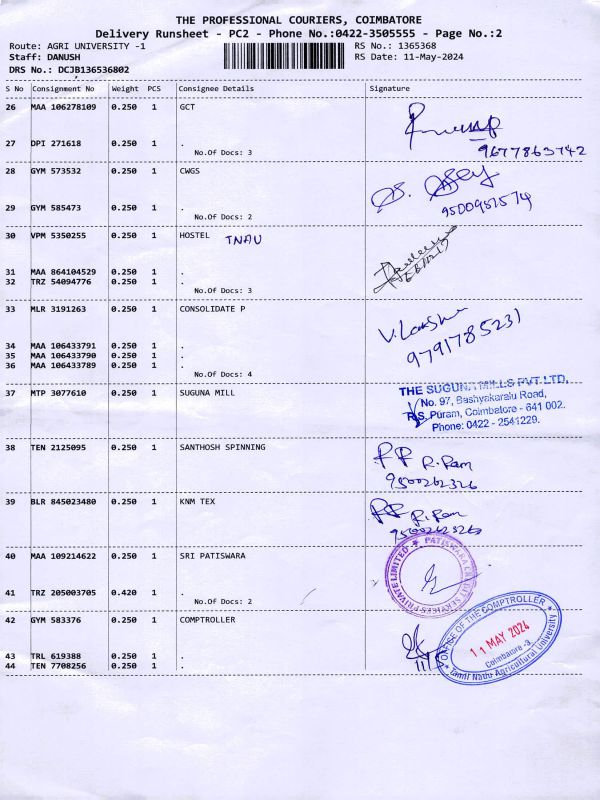 THE PROFESSIONAL COURIERS, COIMBATORE
Delivery Runsheet - PC2 - Phone No.:0422-3505555 - Page No.:2
Route: AGRI UNIVERSITY -1 RS No.: 1365368
Staff: DANUSH RS Date: 11-May-2024
DRS No.: DCJB136536802
S No Consignment No Weight PCS Consignee Details Signature
26 MAA 106278109 0.250 1 GCT
27 DPI 271618 0.250 1 .
No.Of Docs: 3 9677863742
28 GYM 573532 0.250 1 CWGS
29 GYM 585473 0.250 1 .
No.Of Docs: 2
30 VPM 5350255 0.250 1 HOSTEL TNAU
31 MAA 864104529 0.250 1 .
32 TRZ 54094776 0.250 1 .
No.Of Docs: 3
33 MLR 3191263 0.250 1 CONSOLIDATE P
34 MAA 106433791 0.250 1 .
35 MAA 106433790 0.250 1 .
36 MAA 106433789 0.250 1 .
No.Of Docs: 4
9791785231
37 MTP 3077610 0.250 1 SUGUNA MILL
THE SUGUNA MILLS PVT.LTD,
No. 97, Bashyakaralu Road,
R.S. Puram, Coimbatore - 641 002.
Phone: 0422 - 2541229.
38 TEN 2125095 0.250 1 SANTHOSH SPINNING
R. Ram
9500262326
39 BLR 845023480 0.250 1 KNM TEX
R. Ram
40 MAA 109214622 0.250 1 SRI PATISWARA
PATISWARA CREDIT SERVICES PRIVATE LIMITED
41 TRZ 205003705 0.420 1 .
No.Of Docs: 2
42 GYM 583376 0.250 1 COMPTROLLER
OFFICE OF THE COMPTROLLER
11 MAY 2024
Coimbatore -3.
Tamil Nadu Agricultural University
43 TRL 619388 0.250 1 .
44 TEN 7708256 0.250 1 .